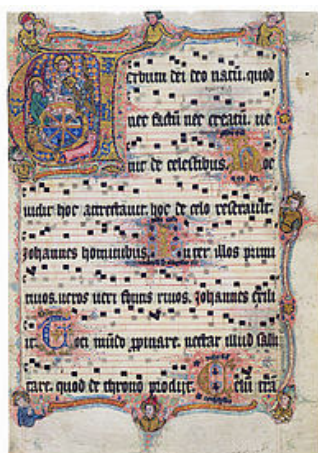 Verbum dei deo natū. quod
nec factū nec creatū. ue
nit de celestibus. Hoc
uidit hoc attrectauit. hoc de celo reserauit.
Johannes hominibus. Inter illos primi
riuos. ueros ueri fontis riuos. Johannes exili
it. Toti mūdo ppinare. nectar illud salu
tare. quod de throno prodijt. Celū trā